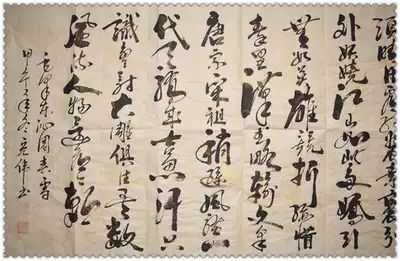 須晴日看红装素裹分
外妖娆江山如此多嬌引
無数英雄競折腰惜
秦皇漢武略輸文采
唐宗宋祖稍遜風騷一
代天驕成吉思汗只
識彎弓射大雕俱往矣数
風流人物還看今朝
毛澤東沁園春雪
甲午年冬立伟书